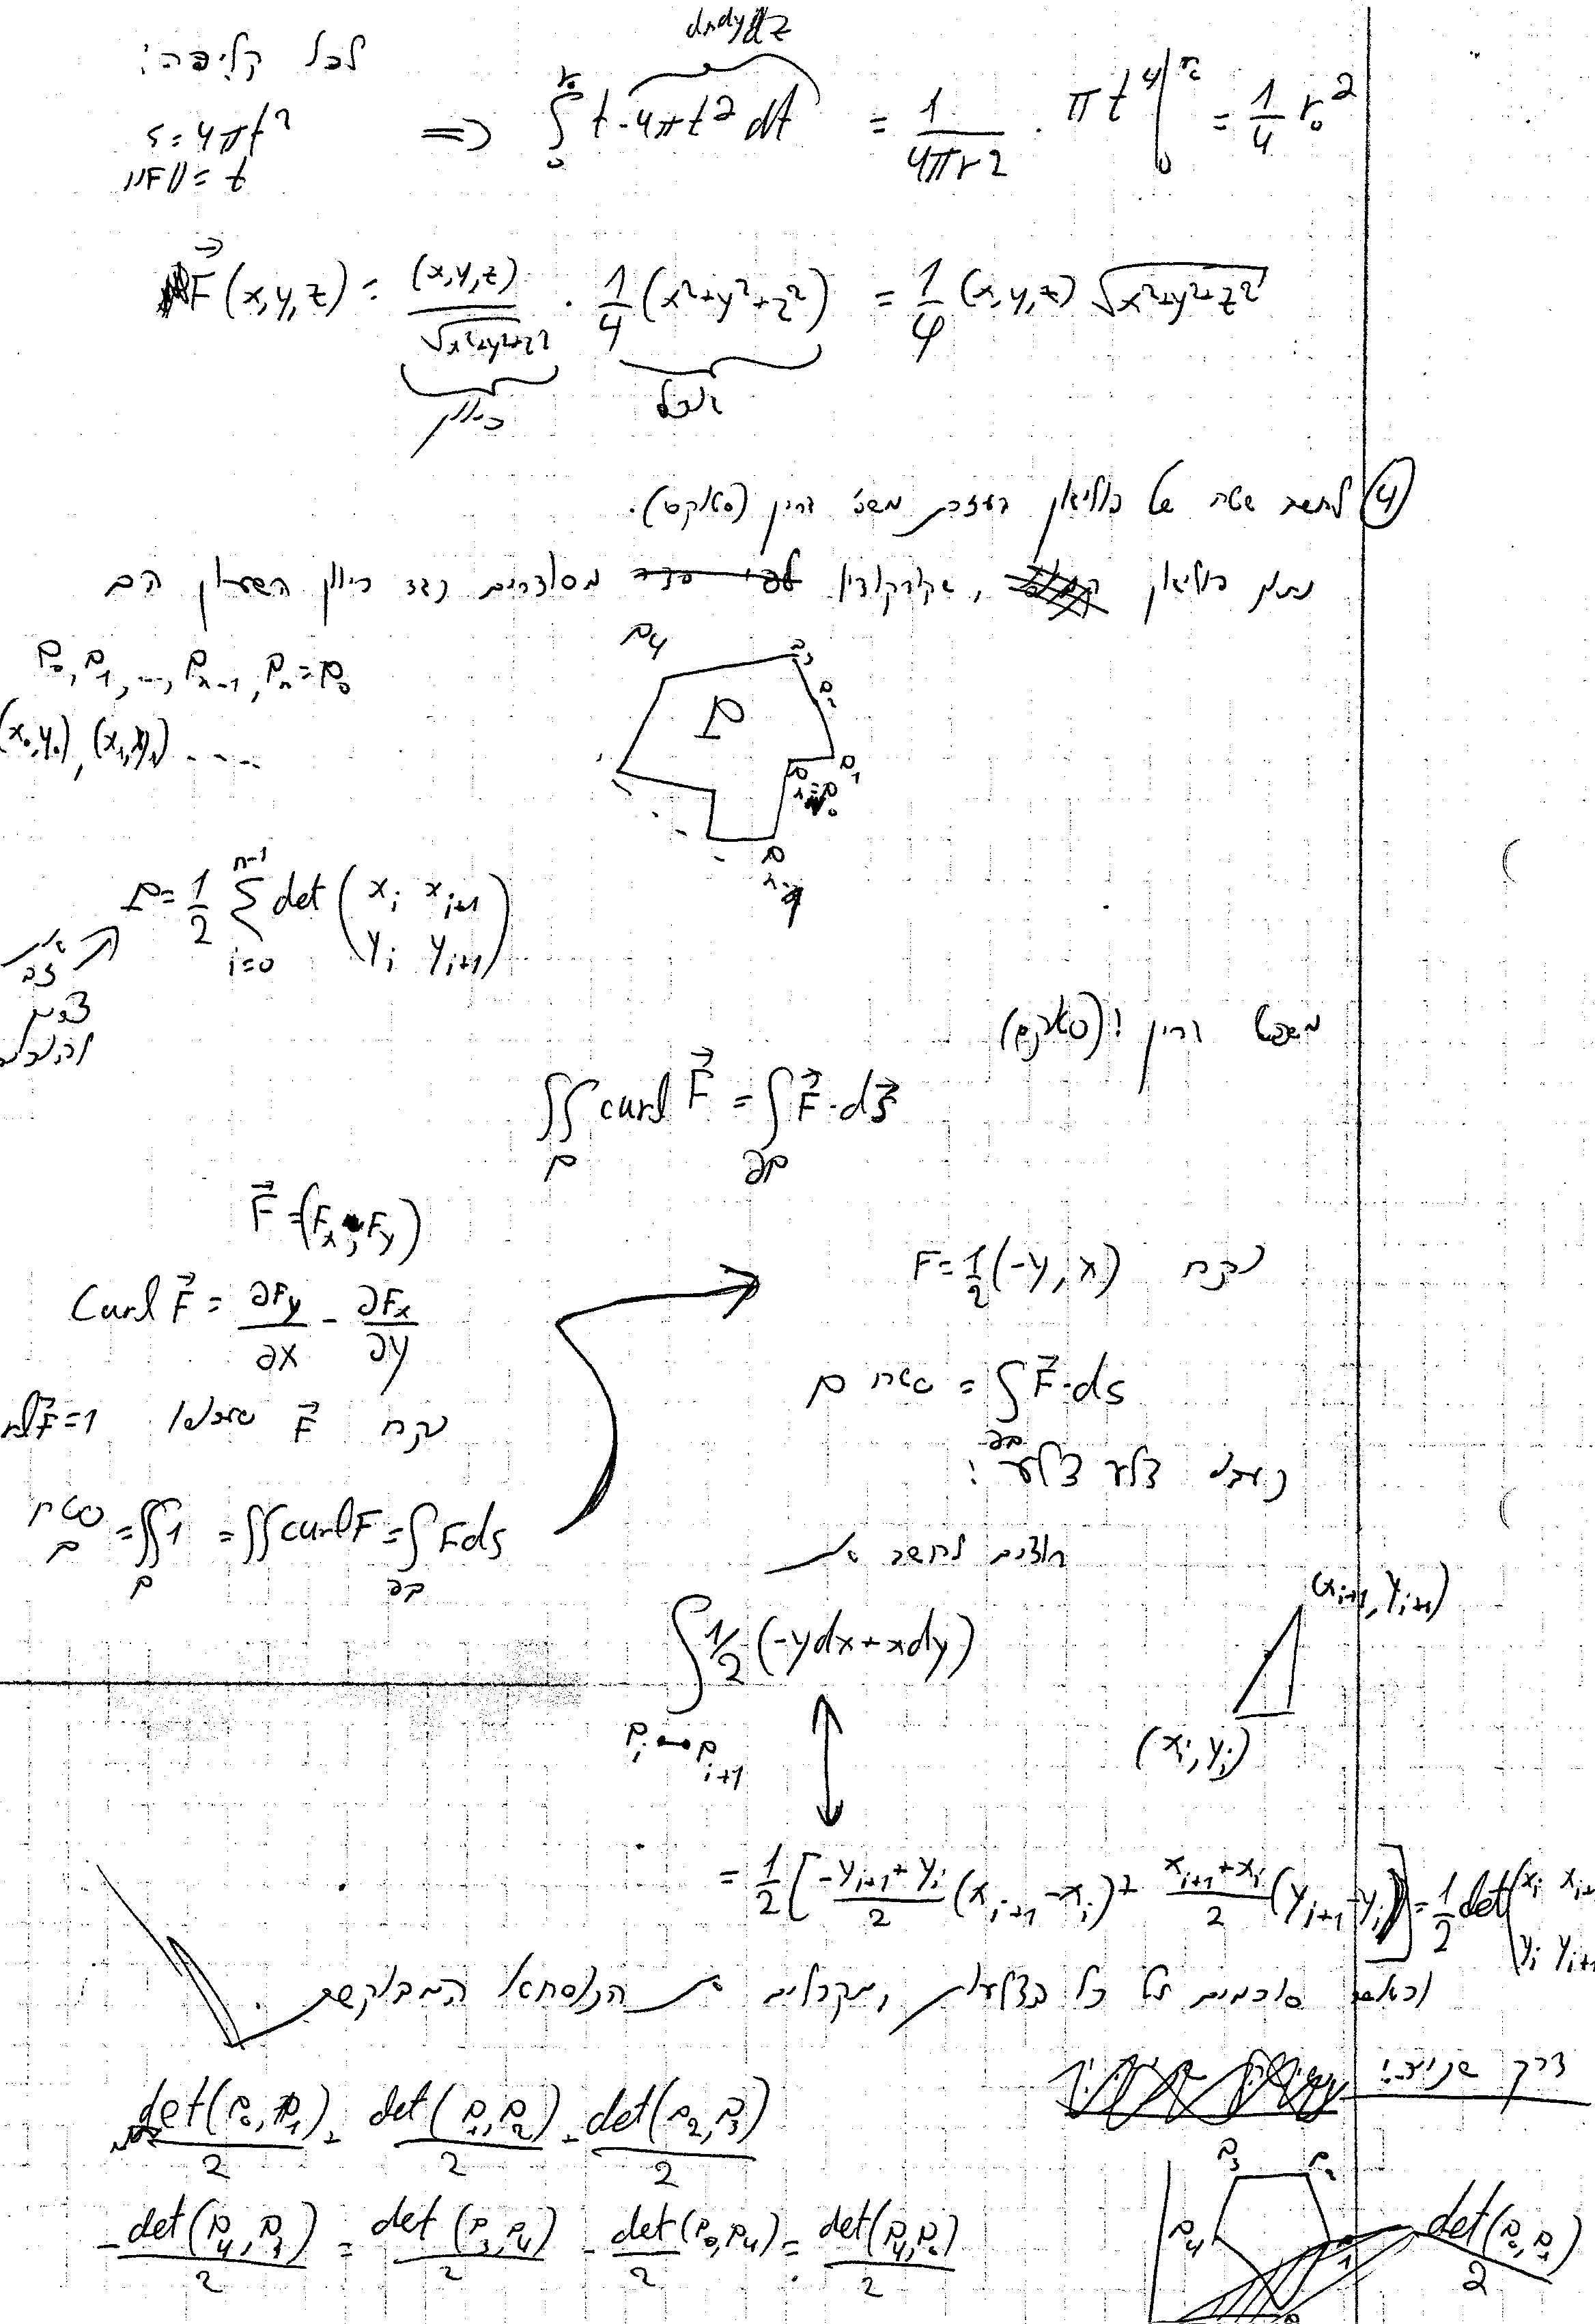 לכל קליפה:
S = 4πt²
‖F‖ = t
⇒ ∫₀^{r₀} t · 4πt² dt = 1/(4πr²) · πt⁴ |₀^{r₀} = 1/4 r₀²
dxdydz
F⃗(x,y,z) = (x,y,z)/√(x²+y²+z²) · 1/4 (x²+y²+z²) = 1/4 (x,y,z) √(x²+y²+z²)
כיוון גודל
④ לחשב שטח של פוליגון בעזרת משפט גרין (סטוקס).
נתון פוליגון, שקודקודיו מסודרים נגד כיוון השעון הם
P₀, P₁, ..., Pₙ₋₁, Pₙ = P₀
(x₀,y₀), (x₁,y₁) .....
P₄ P₃ P₂ P P₁ Pₙ=P₀ Pₙ₋₁
P = 1/2 Σ_{i=0}^{n-1} det (xᵢ xᵢ₊₁ ; yᵢ yᵢ₊₁)
את זה צריך להוכיח
משפט גרין (סטוקס):
∬_P curl F⃗ = ∫_{∂P} F⃗ · ds⃗
F⃗ = (Fₓ, F_y)
Curl F⃗ = ∂F_y/∂x − ∂Fₓ/∂y
נקח F⃗ שעבורו rl F⃗ = 1
שטח P = ∬_P 1 = ∬ curl F = ∫_{∂P} F ds
נקח F = 1/2 (-y, x)
שטח P = ∫_{∂P} F⃗ · ds
נעבור צלע צלע:
רוצים לחשב את
∫_{Pᵢ↔Pᵢ₊₁} 1/2 (-ydx + xdy)
(xᵢ₊₁, yᵢ₊₁)
(xᵢ, yᵢ)
= 1/2 [ -(yᵢ₊₁+yᵢ)/2 (xᵢ₊₁ − xᵢ) + (xᵢ₊₁+xᵢ)/2 (yᵢ₊₁ − yᵢ) ] = 1/2 det (xᵢ xᵢ₊ ; yᵢ yᵢ₊₁
וכאשר סוכמים על כל הצלעות, מקבלים את הנוסחא המבוקשת.
דרך שנייה:
det(P₀,P₁)/2 + det(P₁,P₂)/2 + det(P₂,P₃)/2
−det(P₄,P₃)/2 = det(P₃,P₄)/2 − det(P₀,P₄)/2 = det(P₄,P₀)/2
P₃ P₂ P₄ P₁ det(P₀,P₁)/2